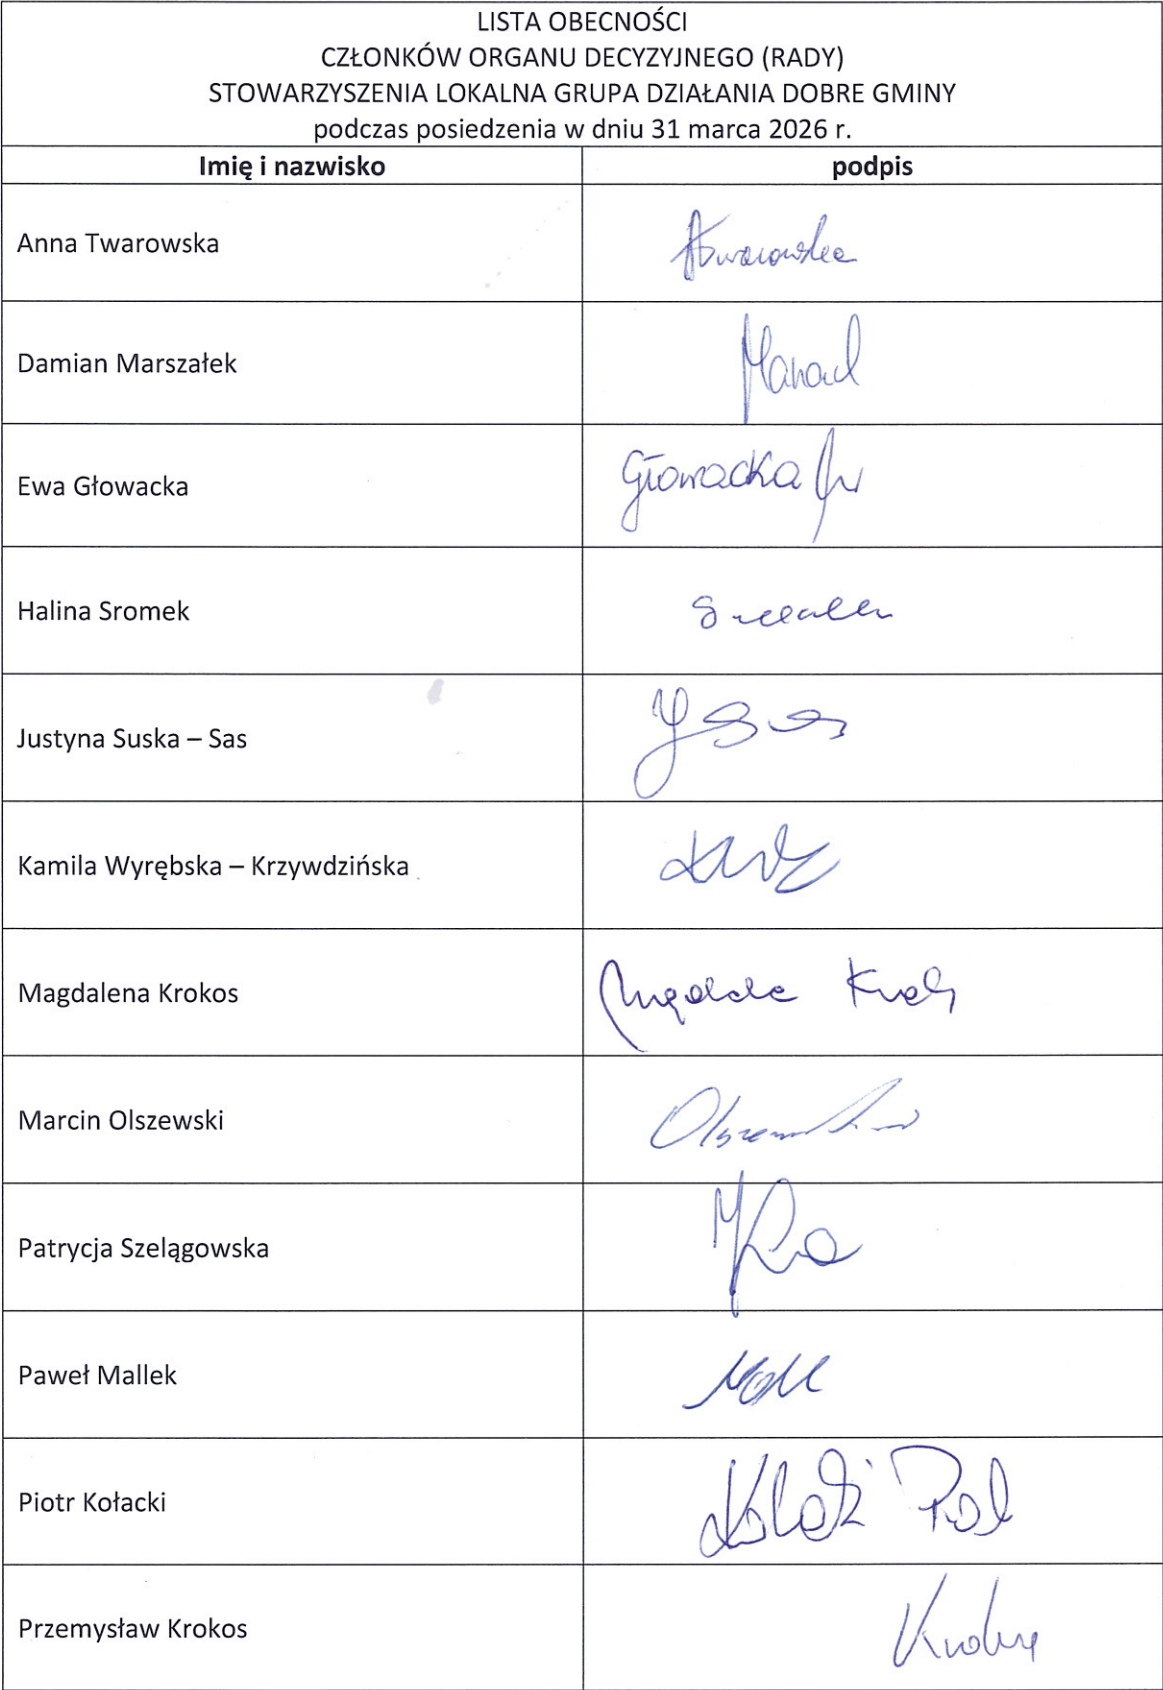 LISTA OBECNOŚCI
CZŁONKÓW ORGANU DECYZYJNEGO (RADY)
STOWARZYSZENIA LOKALNA GRUPA DZIAŁANIA DOBRE GMINY
podczas posiedzenia w dniu 31 marca 2026 r.
Imię i nazwisko podpis
Anna Twarowska
Damian Marszałek
Ewa Głowacka Głowacka
Halina Sromek
Justyna Suska – Sas
Kamila Wyrębska – Krzywdzińska
Magdalena Krokos
Marcin Olszewski
Patrycja Szelągowska
Paweł Mallek
Piotr Kołacki
Przemysław Krokos